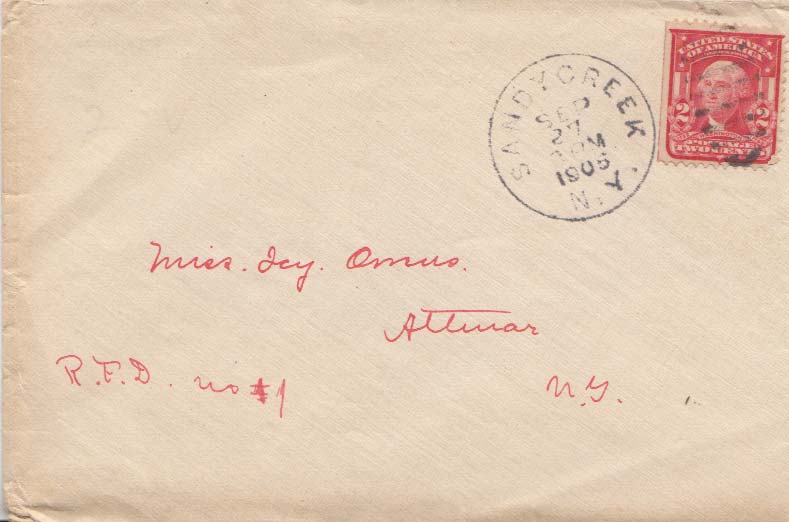 UNITED STATES
OF AMERICA
2 2
POSTAGE
TWO CENTS
SANDY CREEK N.Y.
SEP
27
PM
1905
Miss. Icy. Omus.
Attmar
R.F.D. no 1
N.Y.